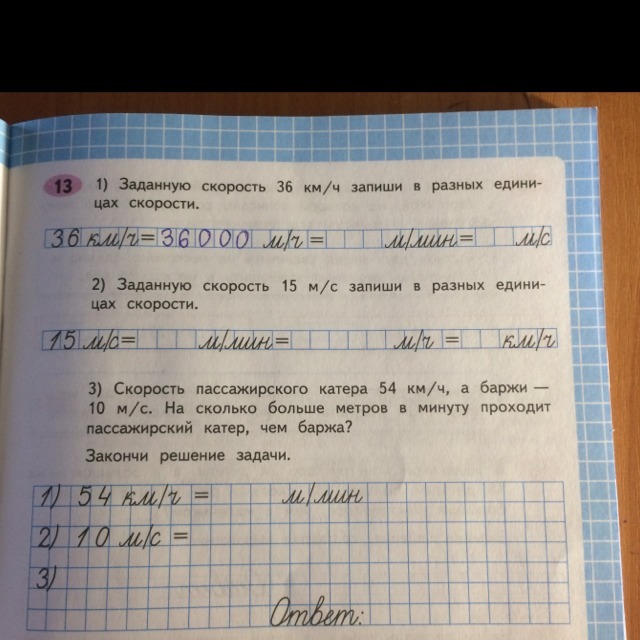 13 1) Заданную скорость 36 км/ч запиши в разных едини-
цах скорости.
36 км/ч = 36000 м/ч = м/мин = м/с
2) Заданную скорость 15 м/с запиши в разных едини-
цах скорости.
15 м/с = м/мин = м/ч = км/ч
3) Скорость пассажирского катера 54 км/ч, а баржи —
10 м/с. На сколько больше метров в минуту проходит
пассажирский катер, чем баржа?
Закончи решение задачи.
1) 54 км/ч = м/мин
2) 10 м/с =
3)
Ответ: